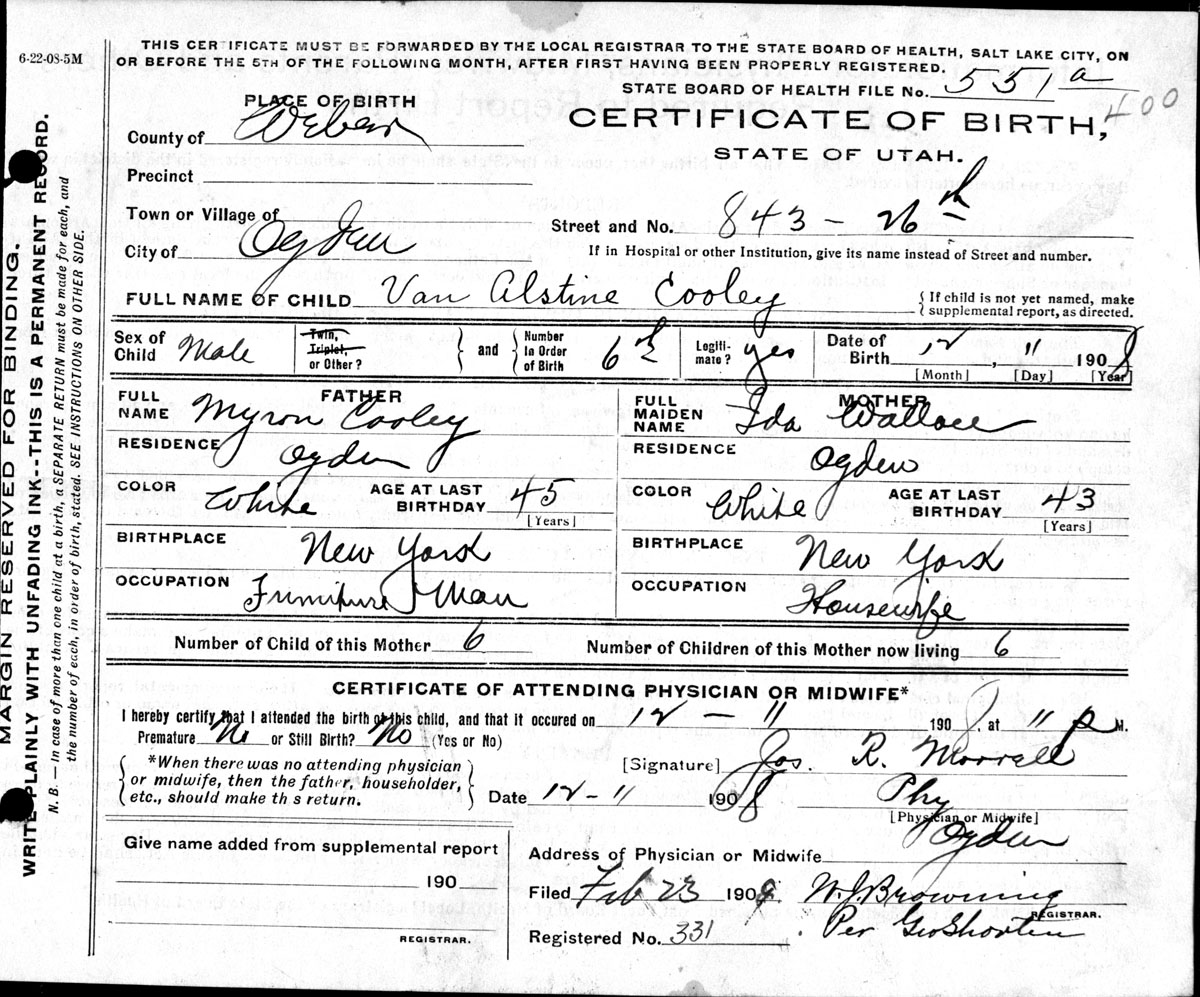 6-22-08-5M
THIS CERTIFICATE MUST BE FORWARDED BY THE LOCAL REGISTRAR TO THE STATE BOARD OF HEALTH, SALT LAKE CITY, ON
OR BEFORE THE 5TH OF THE FOLLOWING MONTH, AFTER FIRST HAVING BEEN PROPERLY REGISTERED.
STATE BOARD OF HEALTH FILE No. 551a
400
PLACE OF BIRTH
CERTIFICATE OF BIRTH,
STATE OF UTAH.
County of Weber
Precinct
Town or Village of
Street and No. 843 - 26th
City of Ogden
If in Hospital or other Institution, give its name instead of Street and number.
FULL NAME OF CHILD Van Alstine Cooley
{ If child is not yet named, make
supplemental report, as directed.
Sex of Child Male
Twin, Triplet, or Other?
and
Number in Order of Birth 6th
Legiti-mate? yes
Date of Birth 12, 11 1908
[Month] [Day] [Year]
FATHER
FULL NAME Myron Cooley
RESIDENCE Ogden
COLOR White AGE AT LAST BIRTHDAY 45
[Years]
BIRTHPLACE New York
OCCUPATION Furniture Man
MOTHER
FULL MAIDEN NAME Ida Wallace
RESIDENCE Ogden
COLOR White AGE AT LAST BIRTHDAY 43
[Years]
BIRTHPLACE New York
OCCUPATION Housewife
Number of Child of this Mother 6 Number of Children of this Mother now living 6
CERTIFICATE OF ATTENDING PHYSICIAN OR MIDWIFE*
I hereby certify that I attended the birth of this child, and that it occured on 12 - 11 1908, at 11 P M.
Premature No or Still Birth? No (Yes or No)
*When there was no attending physician
or midwife, then the father, householder,
etc., should make th s return.
[Signature] Jos. R. Morrell
Date 12-11 1908 Phy
[Physician or Midwife]
Give name added from supplemental report
190
REGISTRAR.
Address of Physician or Midwife Ogden
Filed Feb 23 1909 W. J. Browning
REGISTRAR.
Registered No. 331 Per Geo Shorten
MARGIN RESERVED FOR BINDING.
WRITE PLAINLY WITH UNFADING INK--THIS IS A PERMANENT RECORD.
N. B. — In case of more than one child at a birth, a SEPARATE RETURN must be made for each, and
the number of each, in order of birth, stated. SEE INSTRUCTIONS ON OTHER SIDE.